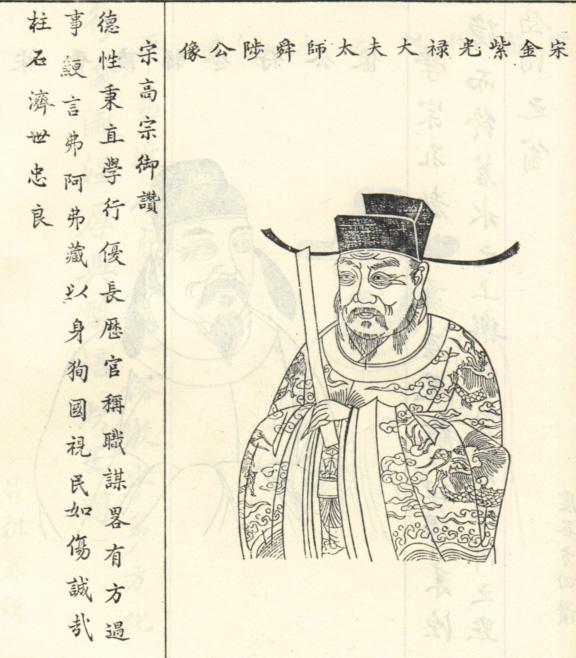 宋金紫光禄大夫太師舜陟公像
宗高宗御讚
德性秉直學行優長歷官稱職謀畧有方過
事鯁言弗阿弗藏以身狥國視民如傷誠哉
柱石濟世忠良